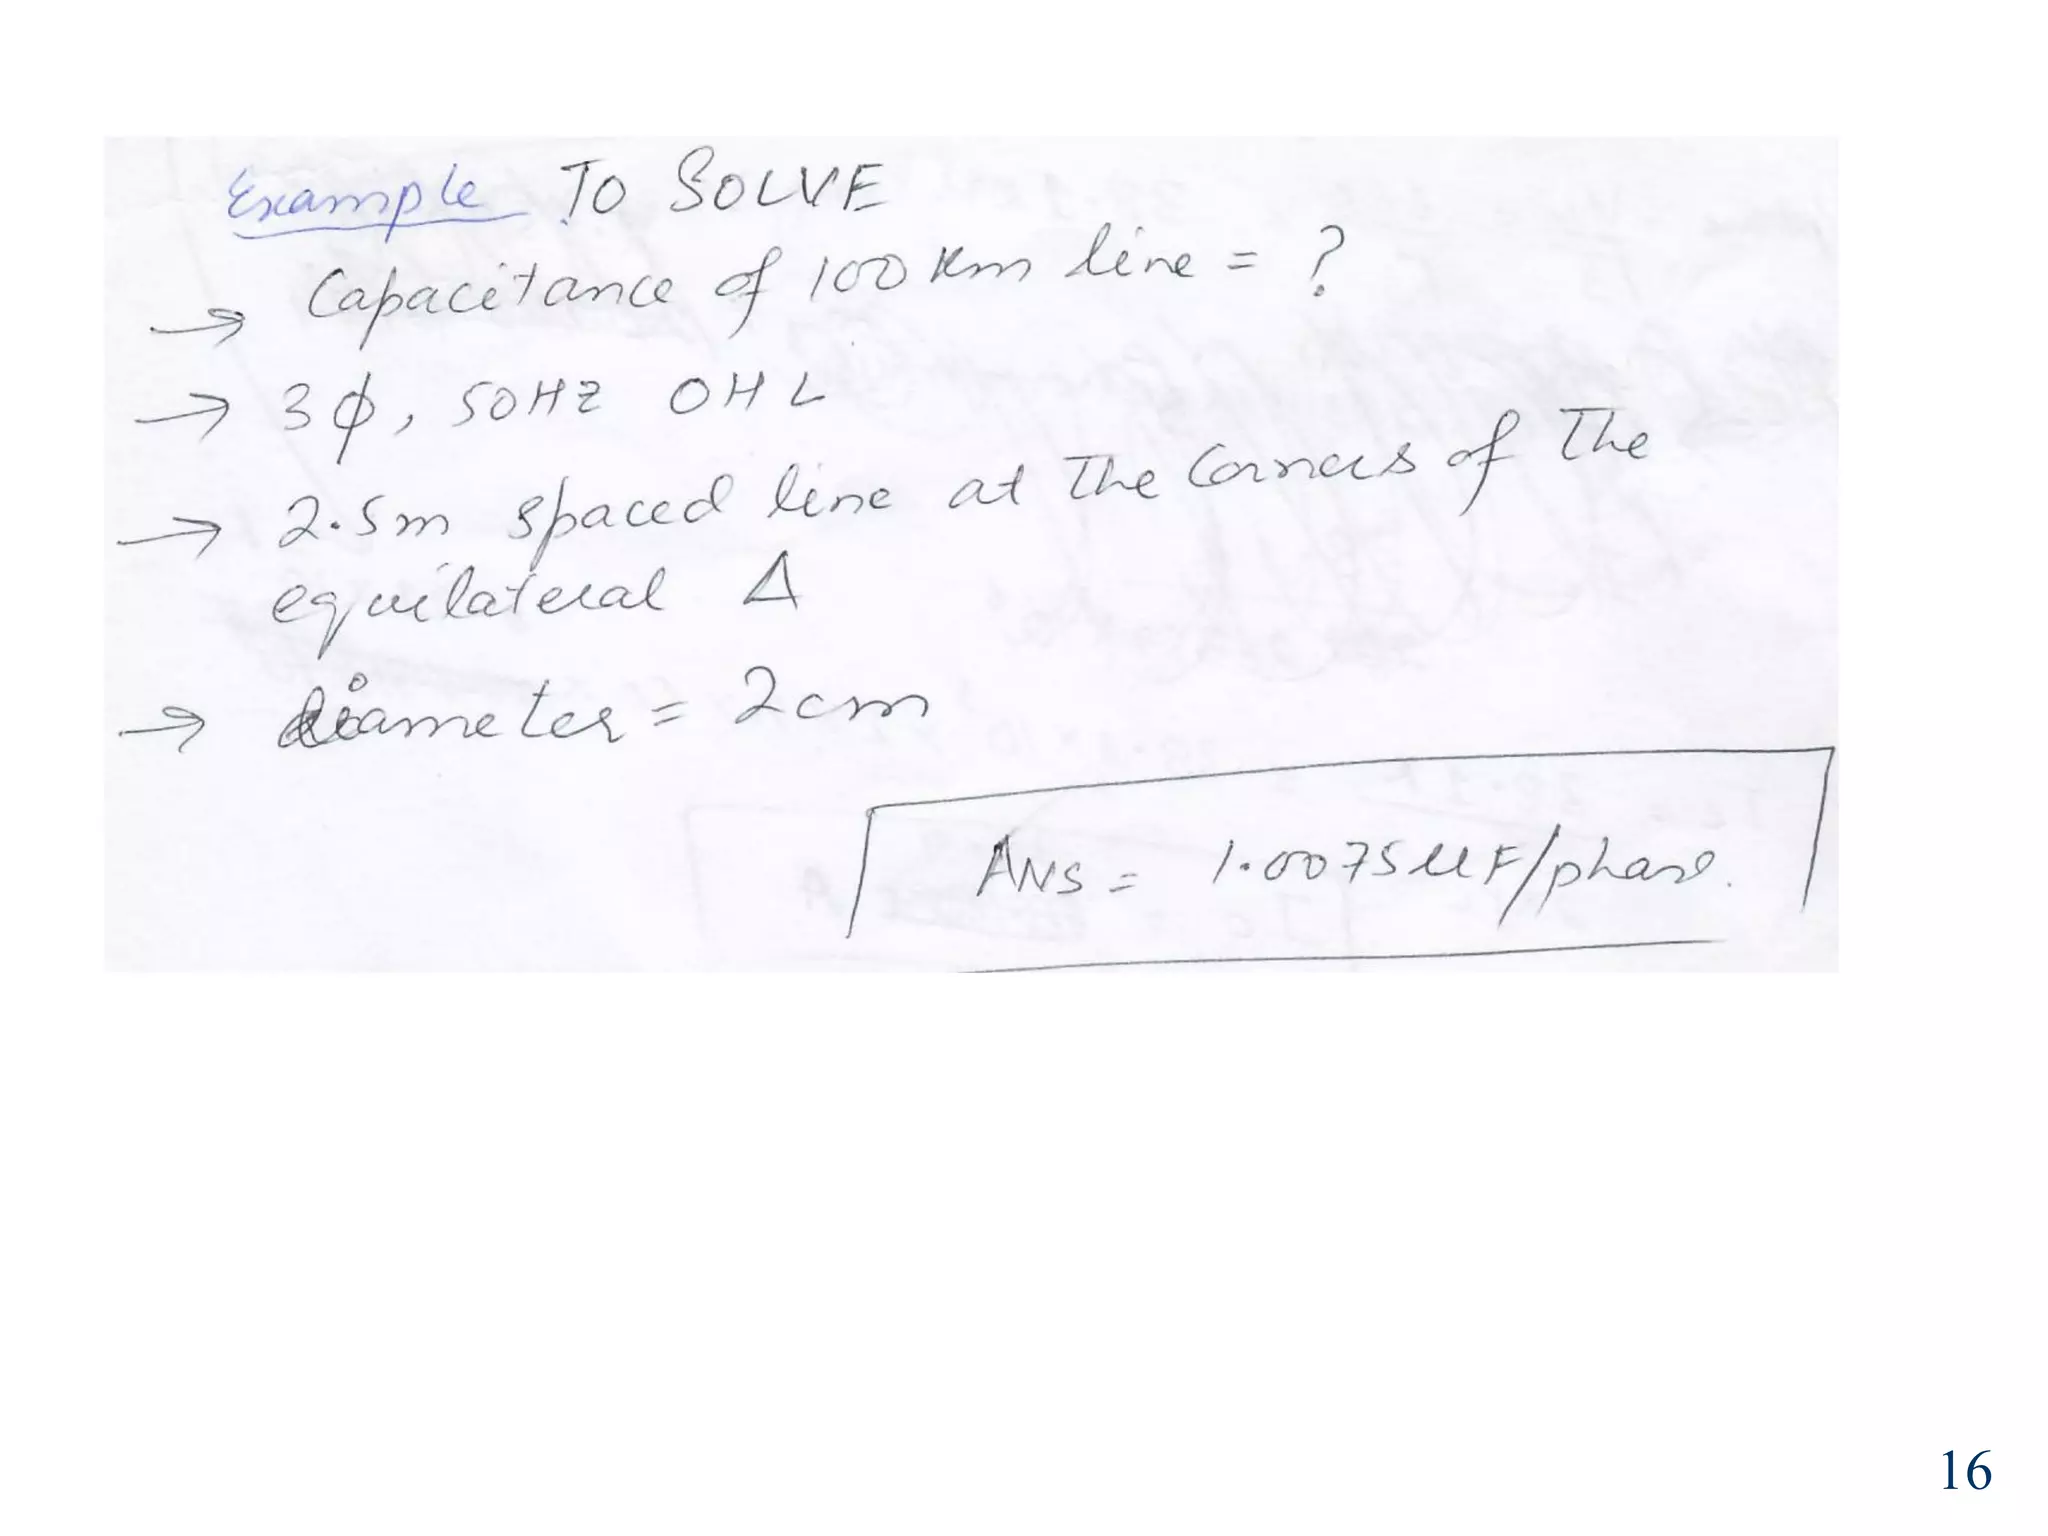 Example TO SOLVE
→ Capacitance of 100 Km line = ?
→ 3ϕ, 50HZ OHL
→ 2.5m spaced line at The Corners of The
equilateral Δ
→ diameter = 2cm
ANS = 1.0075 µF/phase.
16